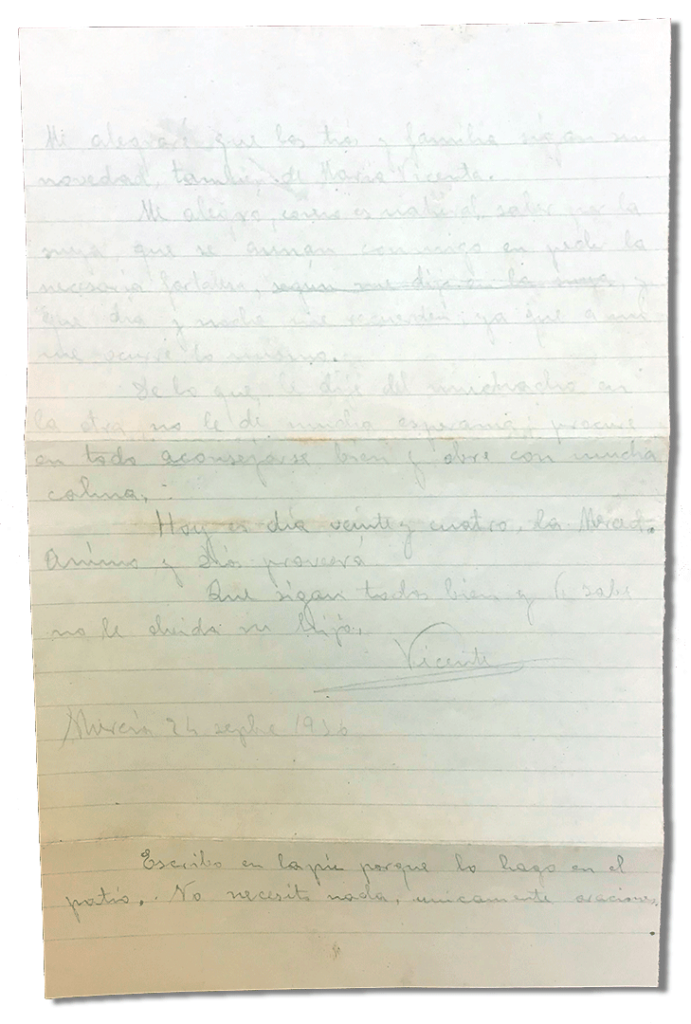 Me alegraré que los tíos y familia sigan sin
novedad, también de María Vicenta.
Me alegro, como es natural, saber por la
suya, que se aunan conmigo en pedir la
necesaria fortaleza, según me dijo en la suya, y
que día y noche me recuerden, ya que a mi
me ocurre lo mismo.
De lo que le dije del muchacho en
la otra, no le de mucha esperanza, procure
en todo aconsejarse bien y obre con mucha
calma.
Hoy es día veinte y cuatro, La Merced.
Animo y Dios proveerá
Que sigan todos bien y Vd. sabe
no le olvida su hijo,
Vicente
Murcia 24 sepbre 1936
Escribo en lapiz porque lo hago en el
patio. No necesito nada, unicamente oraciones.